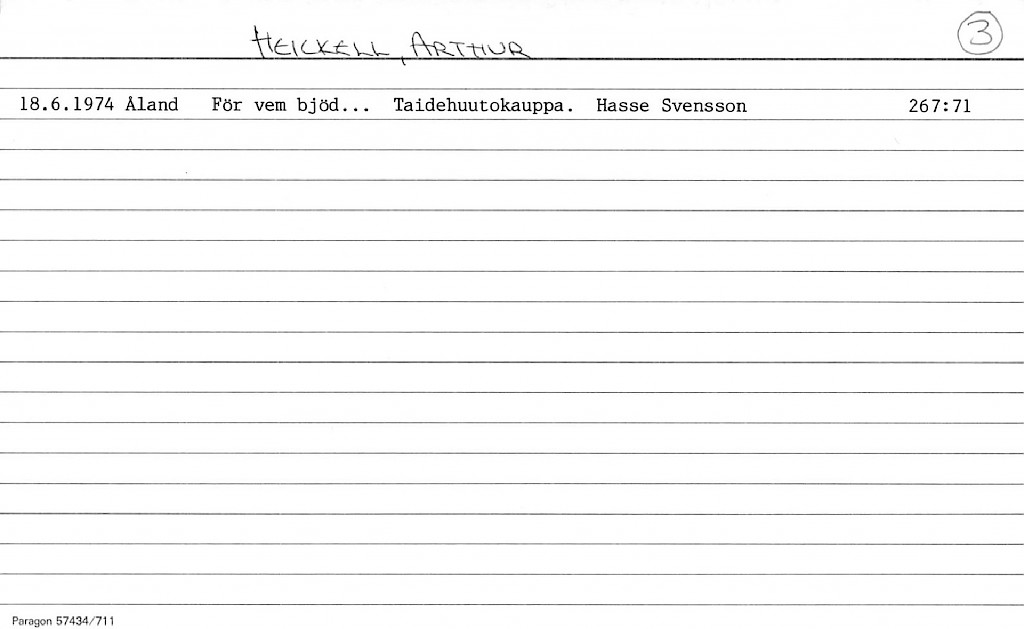 HEICKELL, ARTHUR
3
18.6.1974 Åland För vem bjöd... Taidehuutokauppa. Hasse Svensson 267:71
Paragon 57434/711